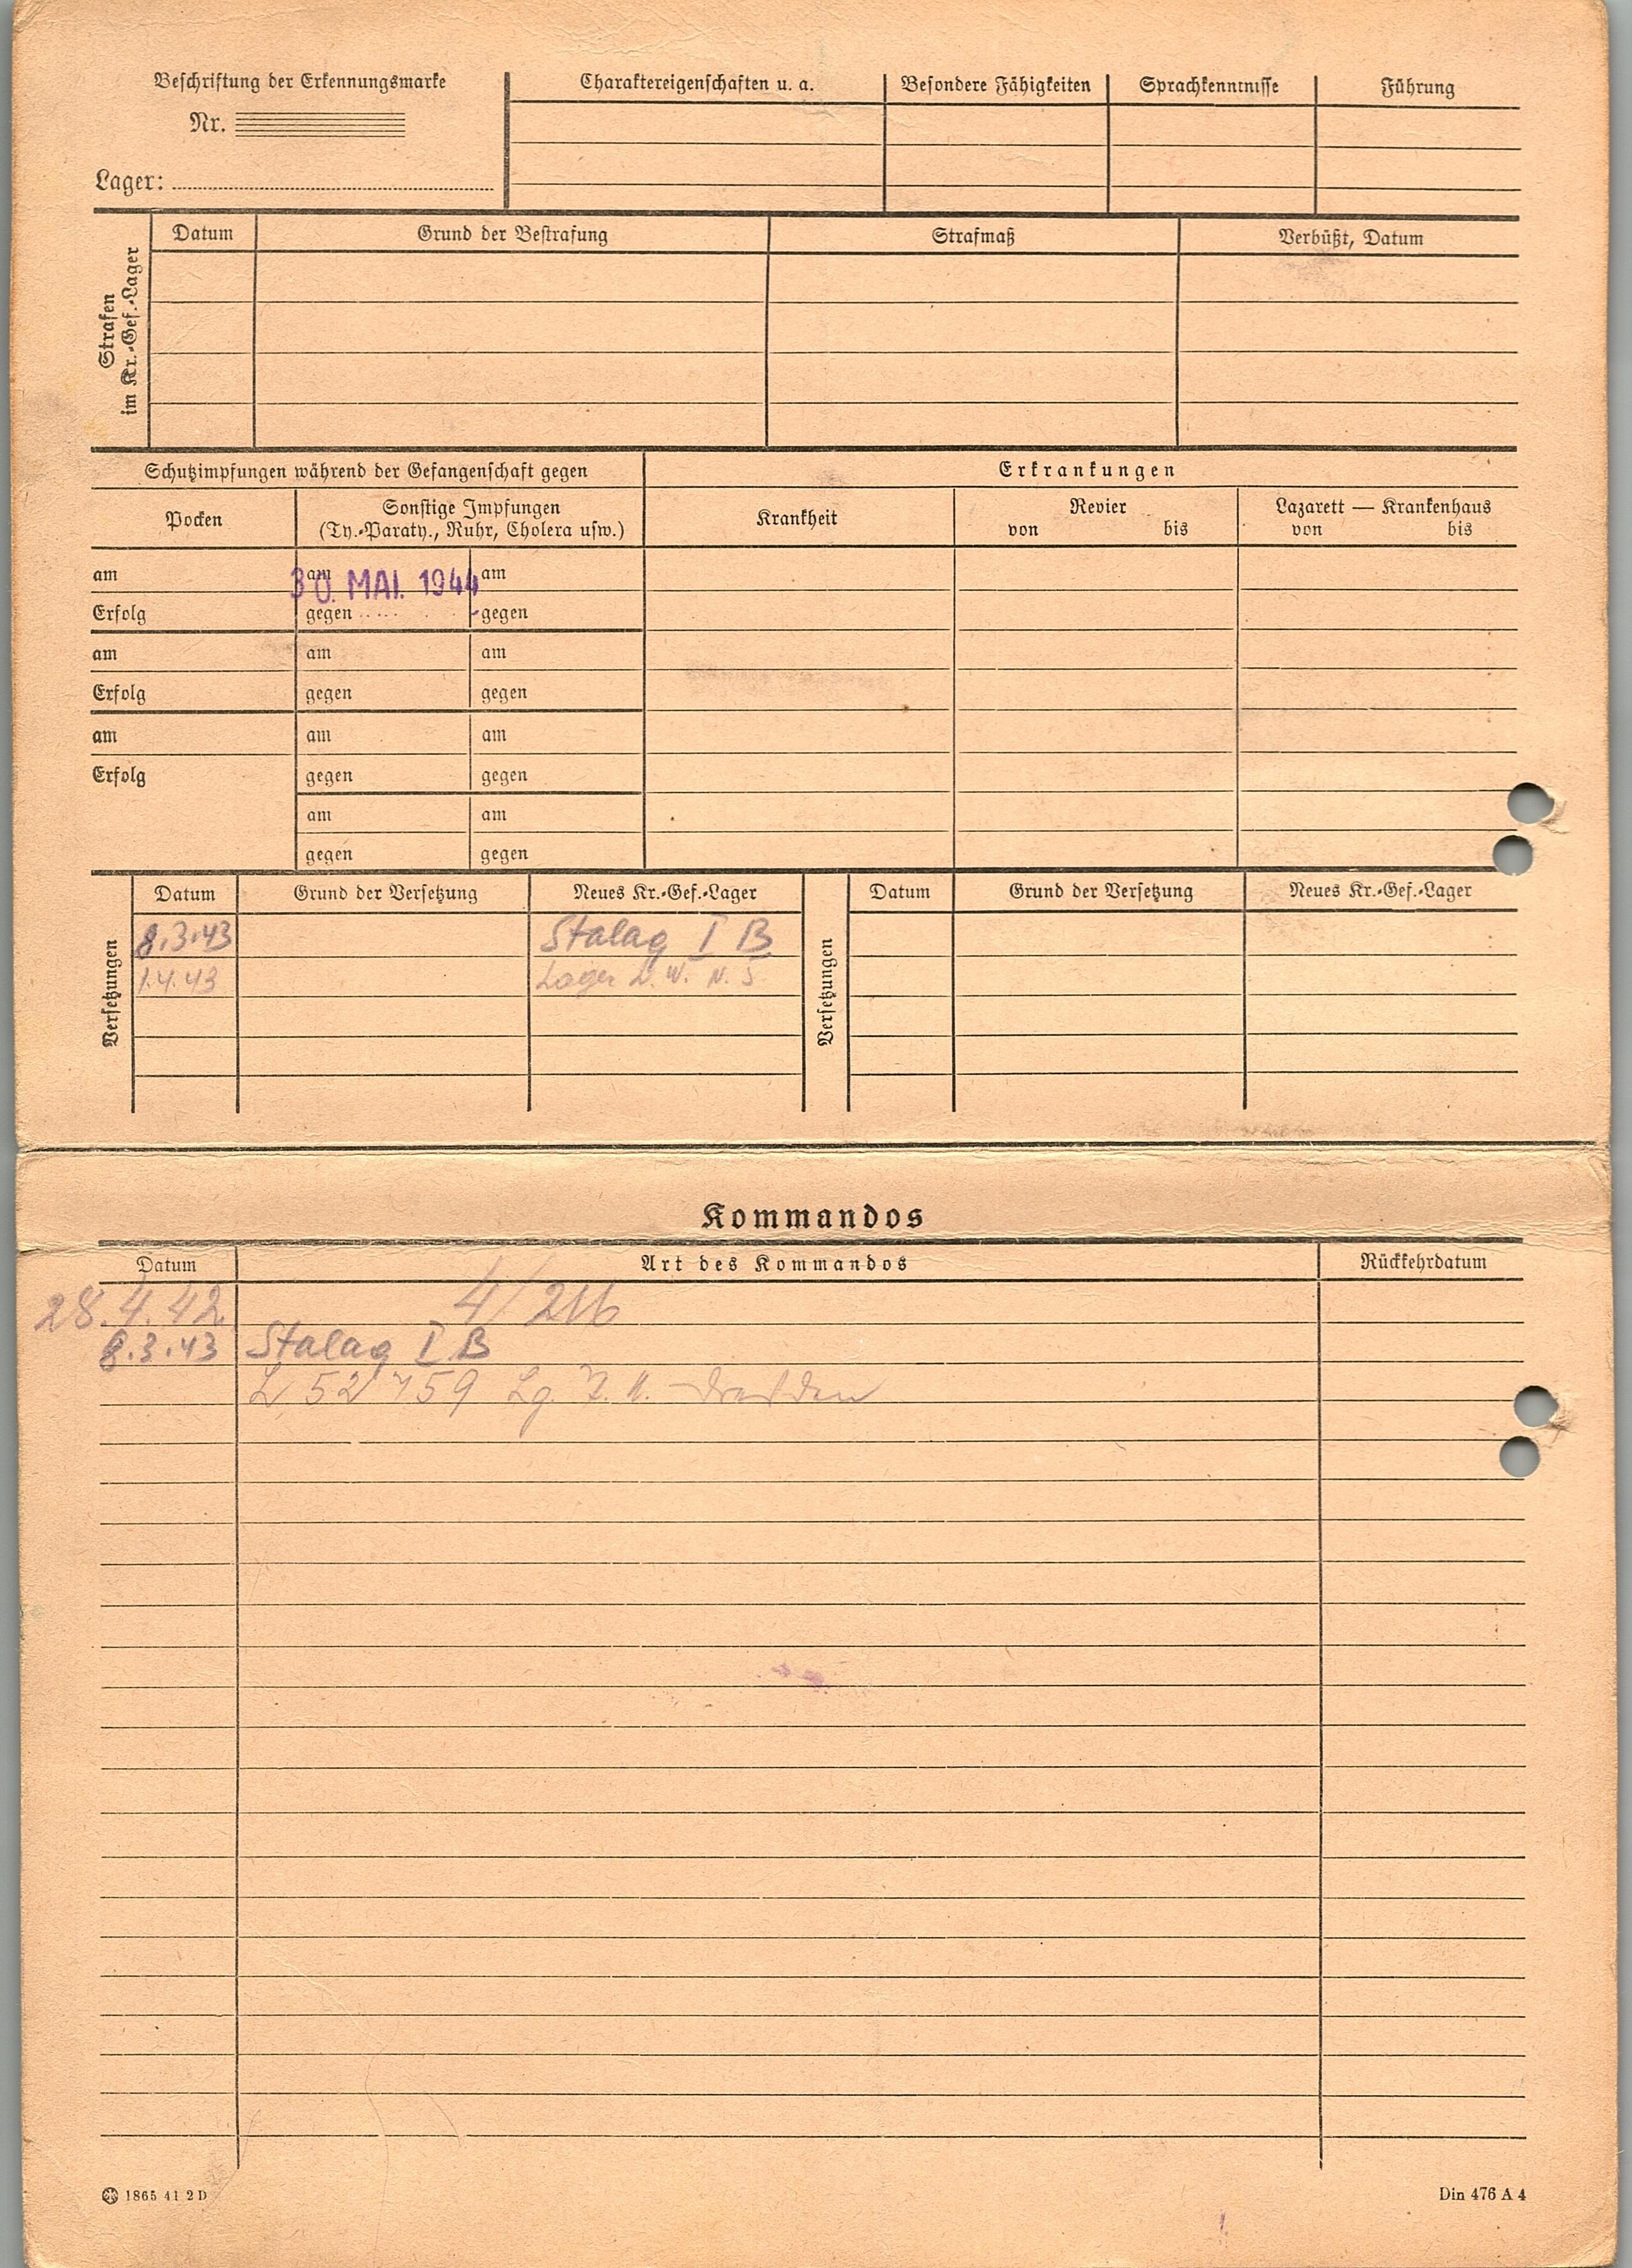 Beschriftung der Erkennungsmarke
Nr.
Lager:
Charaktereigenschaften u. a.
Besondere Fähigkeiten
Sprachkenntnisse
Führung
Strafen
im Kr.-Gef.-Lager
Datum
Grund der Bestrafung
Strafmaß
Verbüßt, Datum
Schutzimpfungen während der Gefangenschaft gegen
Erkrankungen
Pocken
Sonstige Impfungen
(Ty.-Paraty., Ruhr, Cholera usw.)
Krankheit
Revier
von bis
Lazarett — Krankenhaus
von bis
am am am
30. MAI. 1944
Erfolg gegen gegen
am am am
Erfolg gegen gegen
am am am
Erfolg gegen gegen
am am
gegen gegen
Versetzungen
Datum Grund der Versetzung Neues Kr.-Gef.-Lager
8.3.43 Stalag I B
1.4.43 Lager
Versetzungen
Datum Grund der Versetzung Neues Kr.-Gef.-Lager
Kommandos
Datum Art des Kommandos Rückkehrdatum
28.4.42 4/216
8.3.43 Stalag I B
L 52759 Lg. Dresden
1865 41 2 D
Din 476 A 4